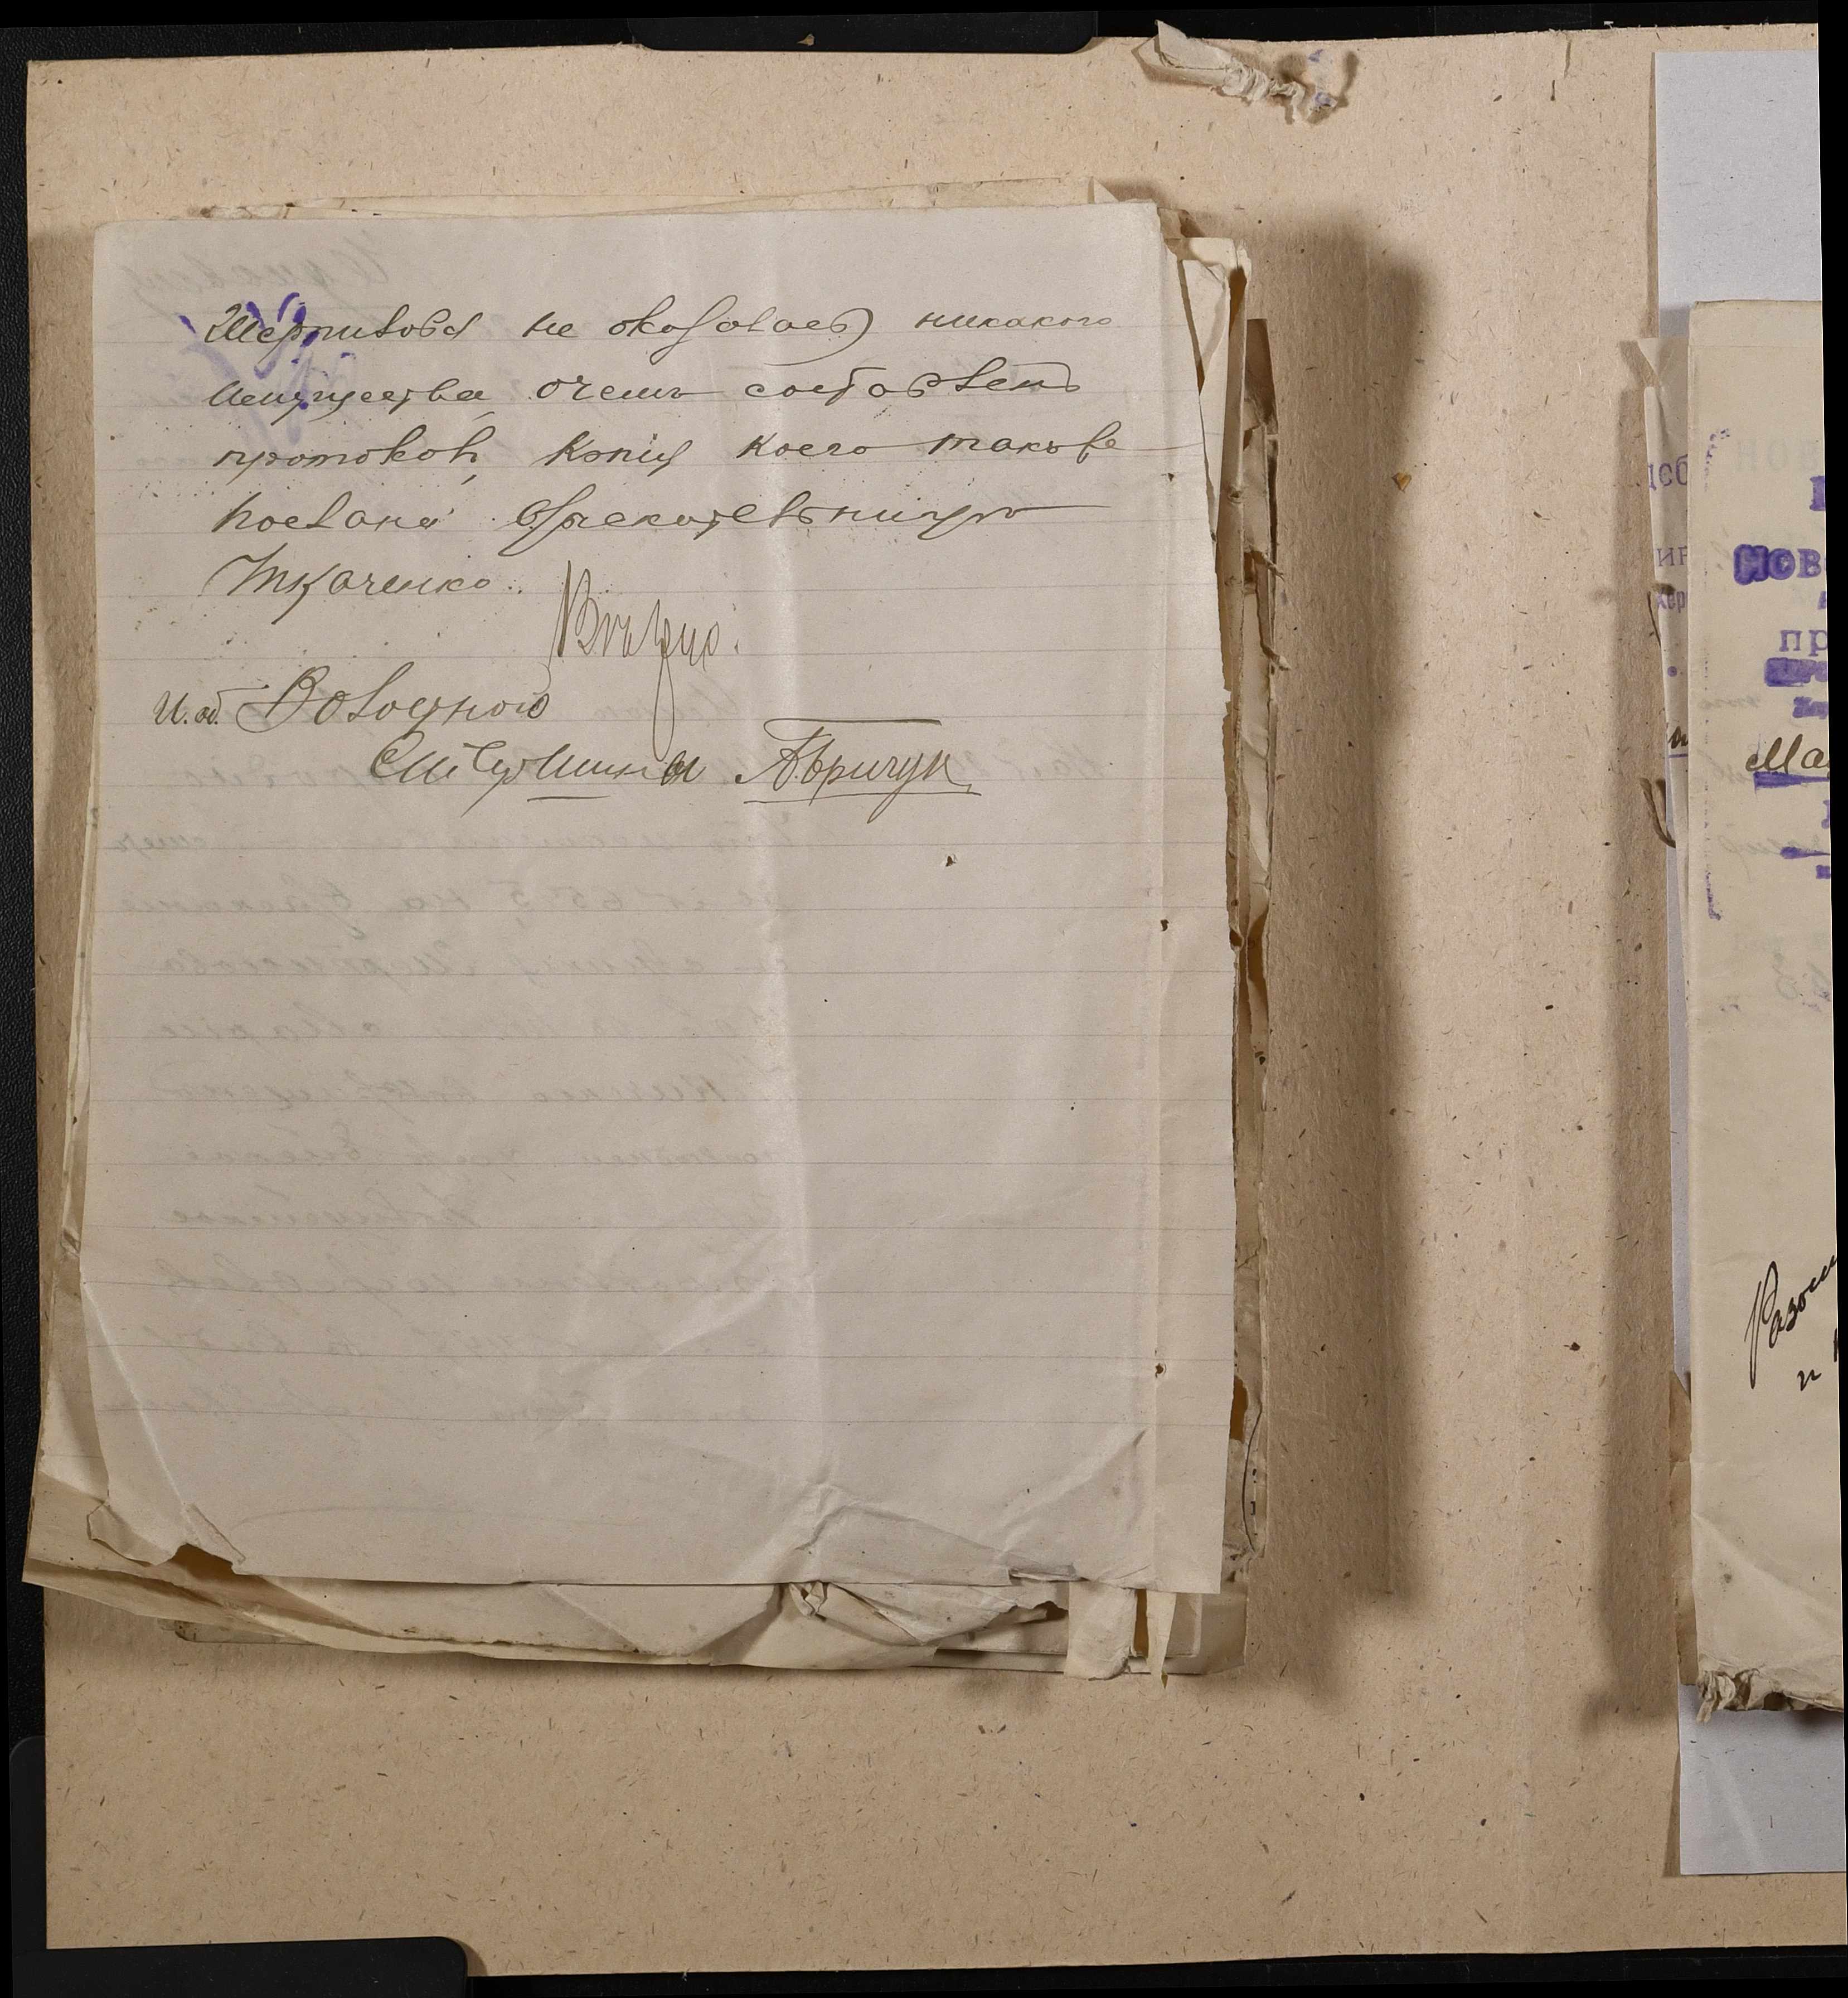 Шерпилова не оказалось никакого
имущества очемъ составленъ
протоколъ, копия коего также
послана взыскательницы
Ткаченко.
И. об. Волостного
Старшины А. Бричук
Мо
пр
Ма
Разом
и